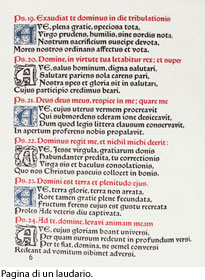 Ps. 19. Exaudiat te dominus in die tribulationis
AVE, plena gratie, speciosa tota,
Virgo prudens, humilis, sine sordis nota,
Nostrum sacrificium suscipe devota,
Mores nostros ordinans affectus et vota.
Ps. 20. Domine, in virtute tua letabitur rex: et super
AVE, salus hominum, digna salutari,
Salutare pariens sola carens pari,
Nostra spes et gloria sit in salutari,
Cujus participio credimus beari.
Ps. 21. Deus deus meus, respice in me; quare me
AVE, cujus uterus vermem procreavit
Qui submordens ederam ione desiccavit,
Dum quod legis littera clausum conservavit,
In apertum proferens nobis propalavit.
Ps. 22. Dominus regit me, et nichil michi deerit:
AVE, Jesse virgula, gratiarum donis
Pabundanter predita, tu correctionis
Virga nis et baculus consolationis,
Quo nos Christus pascuis collocet in bonis.
Ps. 23. Domini est terra et plenitudo ejus.
AVE, terra glorie, terra non arrata,
Rore tamen gratie plene fecundata,
Fructum ferens cujus est gustu recreata
Proles Ade veteris diu captivata.
Ps. 24. Ad te, domine, levavi animam meam
AVE, cujus gloriam boant universi,
Per quam sursum redeant in profundum versi.
Per te fiat, domina, ne semel conversi
Redeant ad vomitum nibimet adversi.
6
Pagina di un laudario.